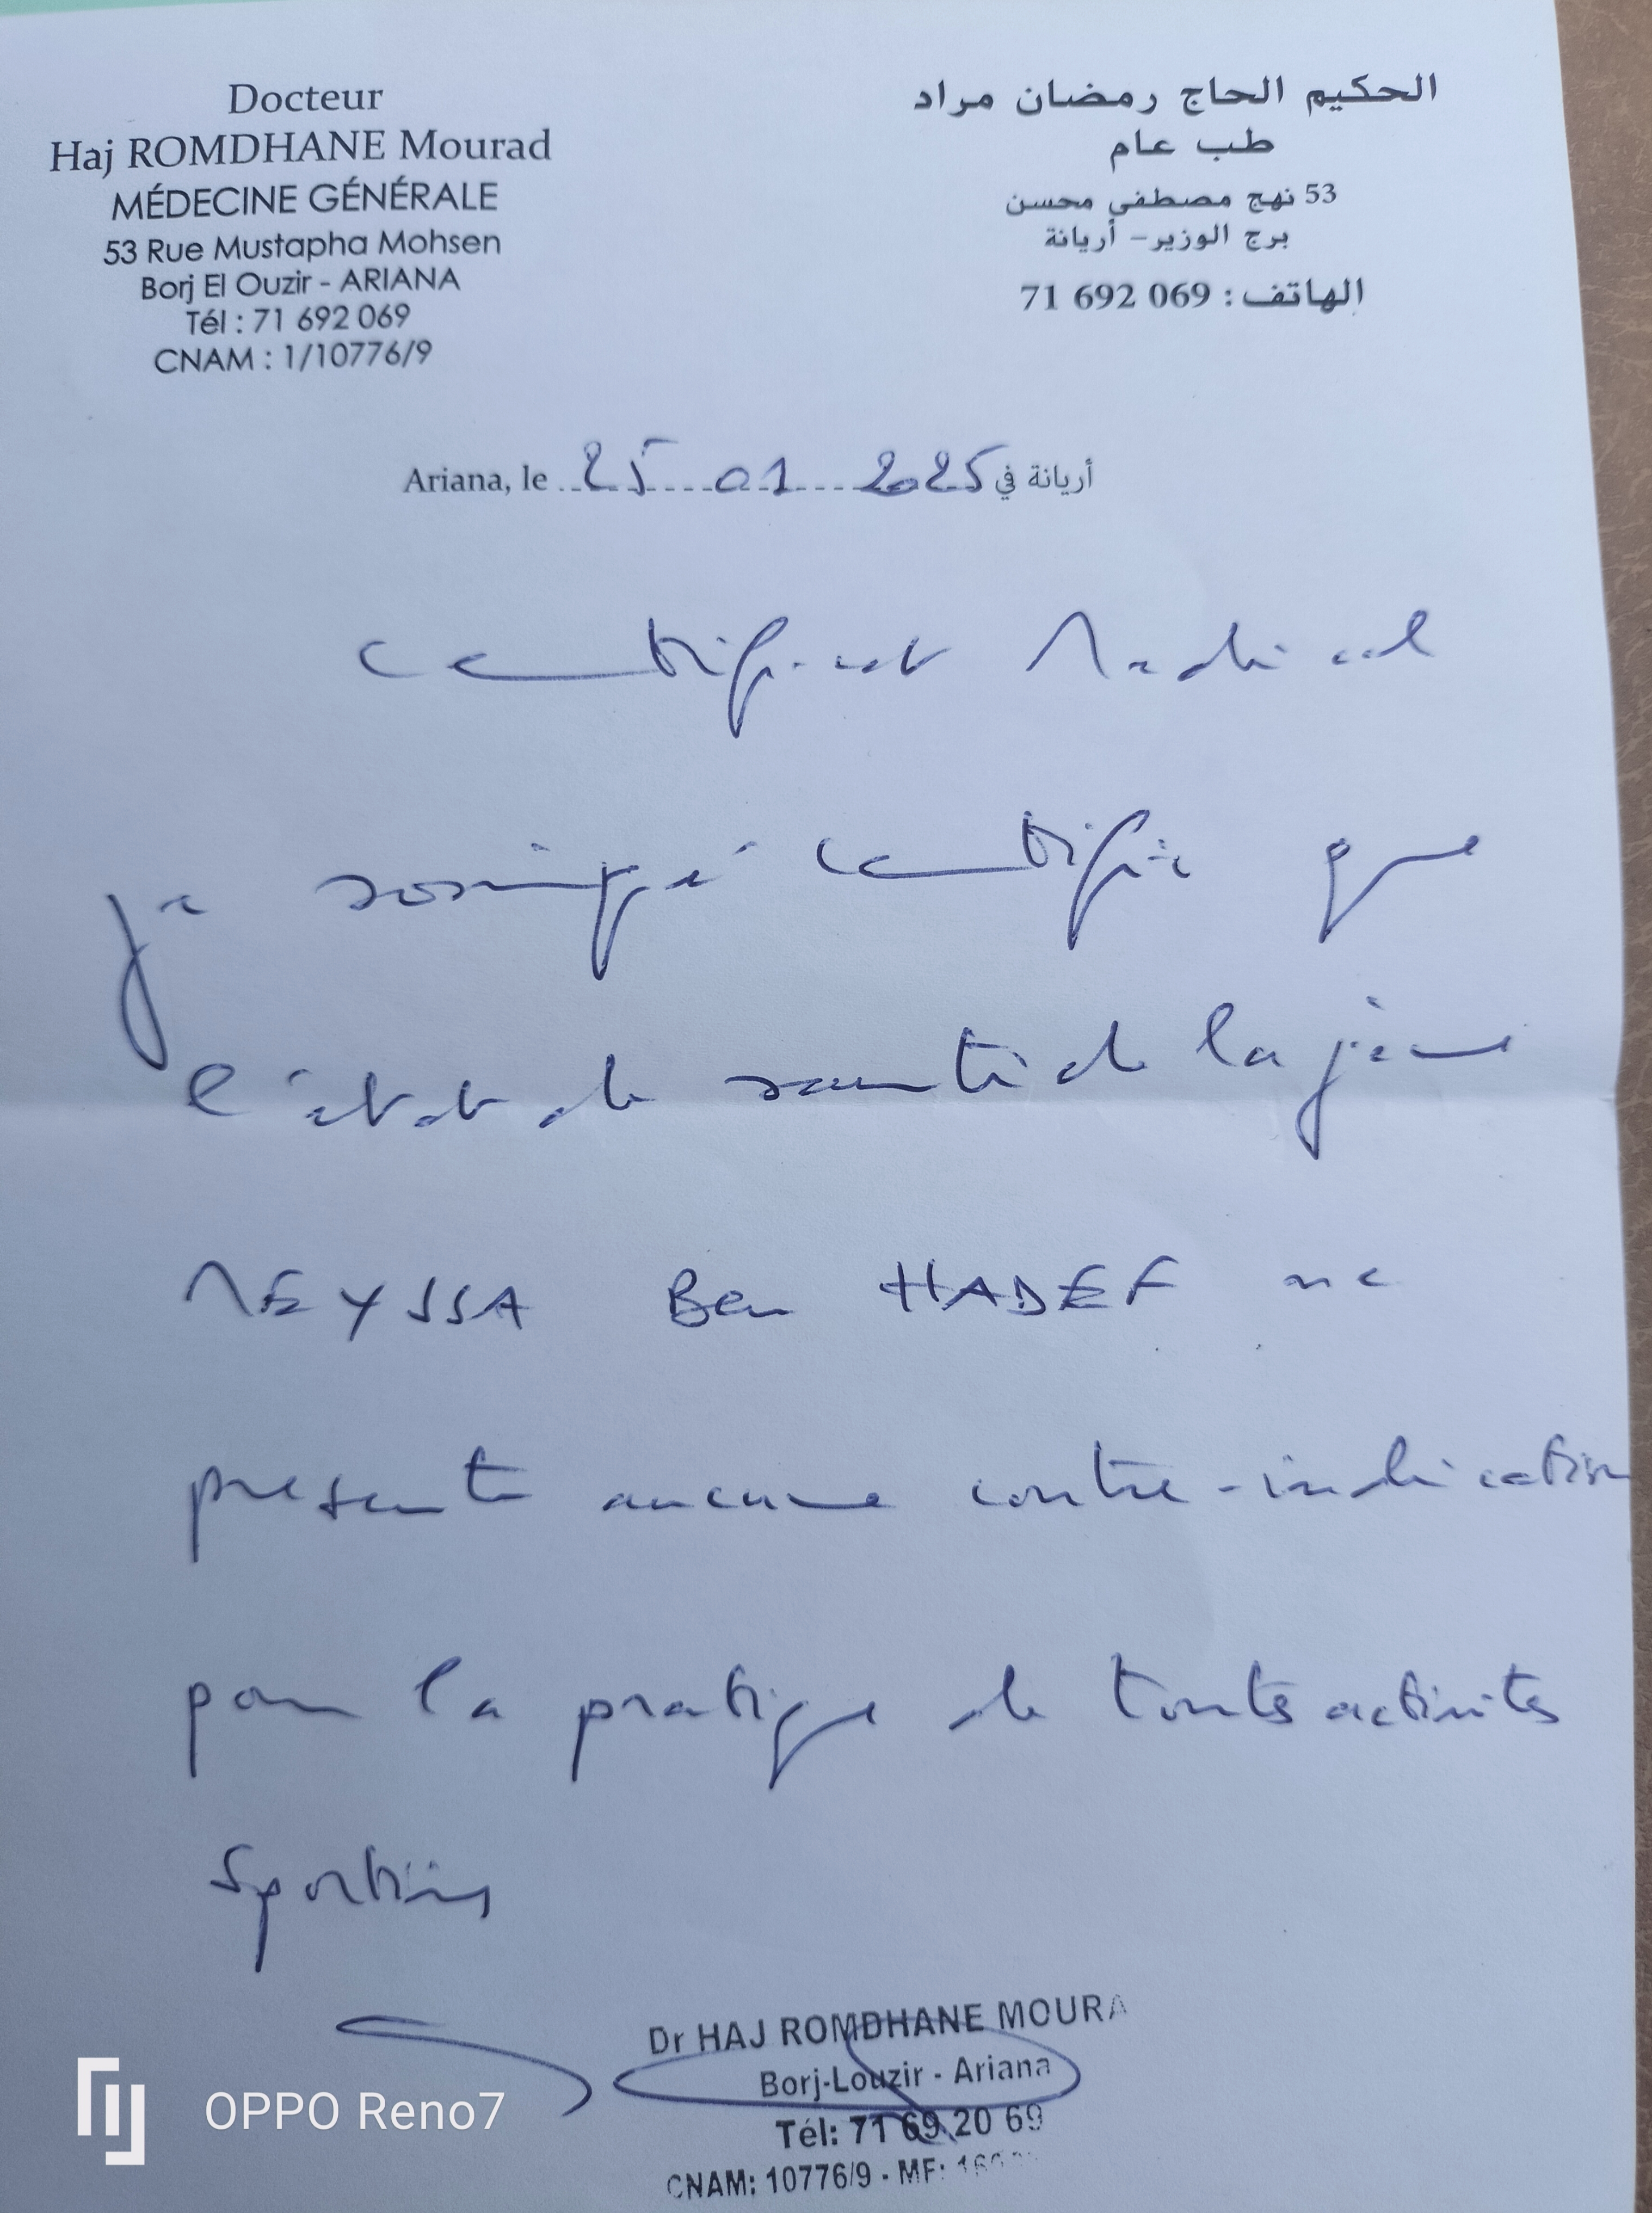 Docteur
Haj ROMDHANE Mourad
MÉDECINE GÉNÉRALE
53 Rue Mustapha Mohsen
Borj El Ouzir - ARIANA
Tél : 71 692 069
CNAM : 1/10776/9
الحكيم الحاج رمضان مراد
طب عام
53 نهج مصطفى محسن
برج الوزير – أريانة
الهاتف : 069 692 71
Ariana, le 25 01 2025 أريانة في
certificat Medical
je soussigné certifie que
l'état de santé de la jeune
MEYSSA Ben HADEF ne
présente aucune contre-indication
pour la pratique de toutes activités
Sportives
Dr HAJ ROMDHANE MOURA
Borj-Louzir - Ariana
Tél: 71 69 20 69
CNAM: 10776/9 - MF:
OPPO Reno7